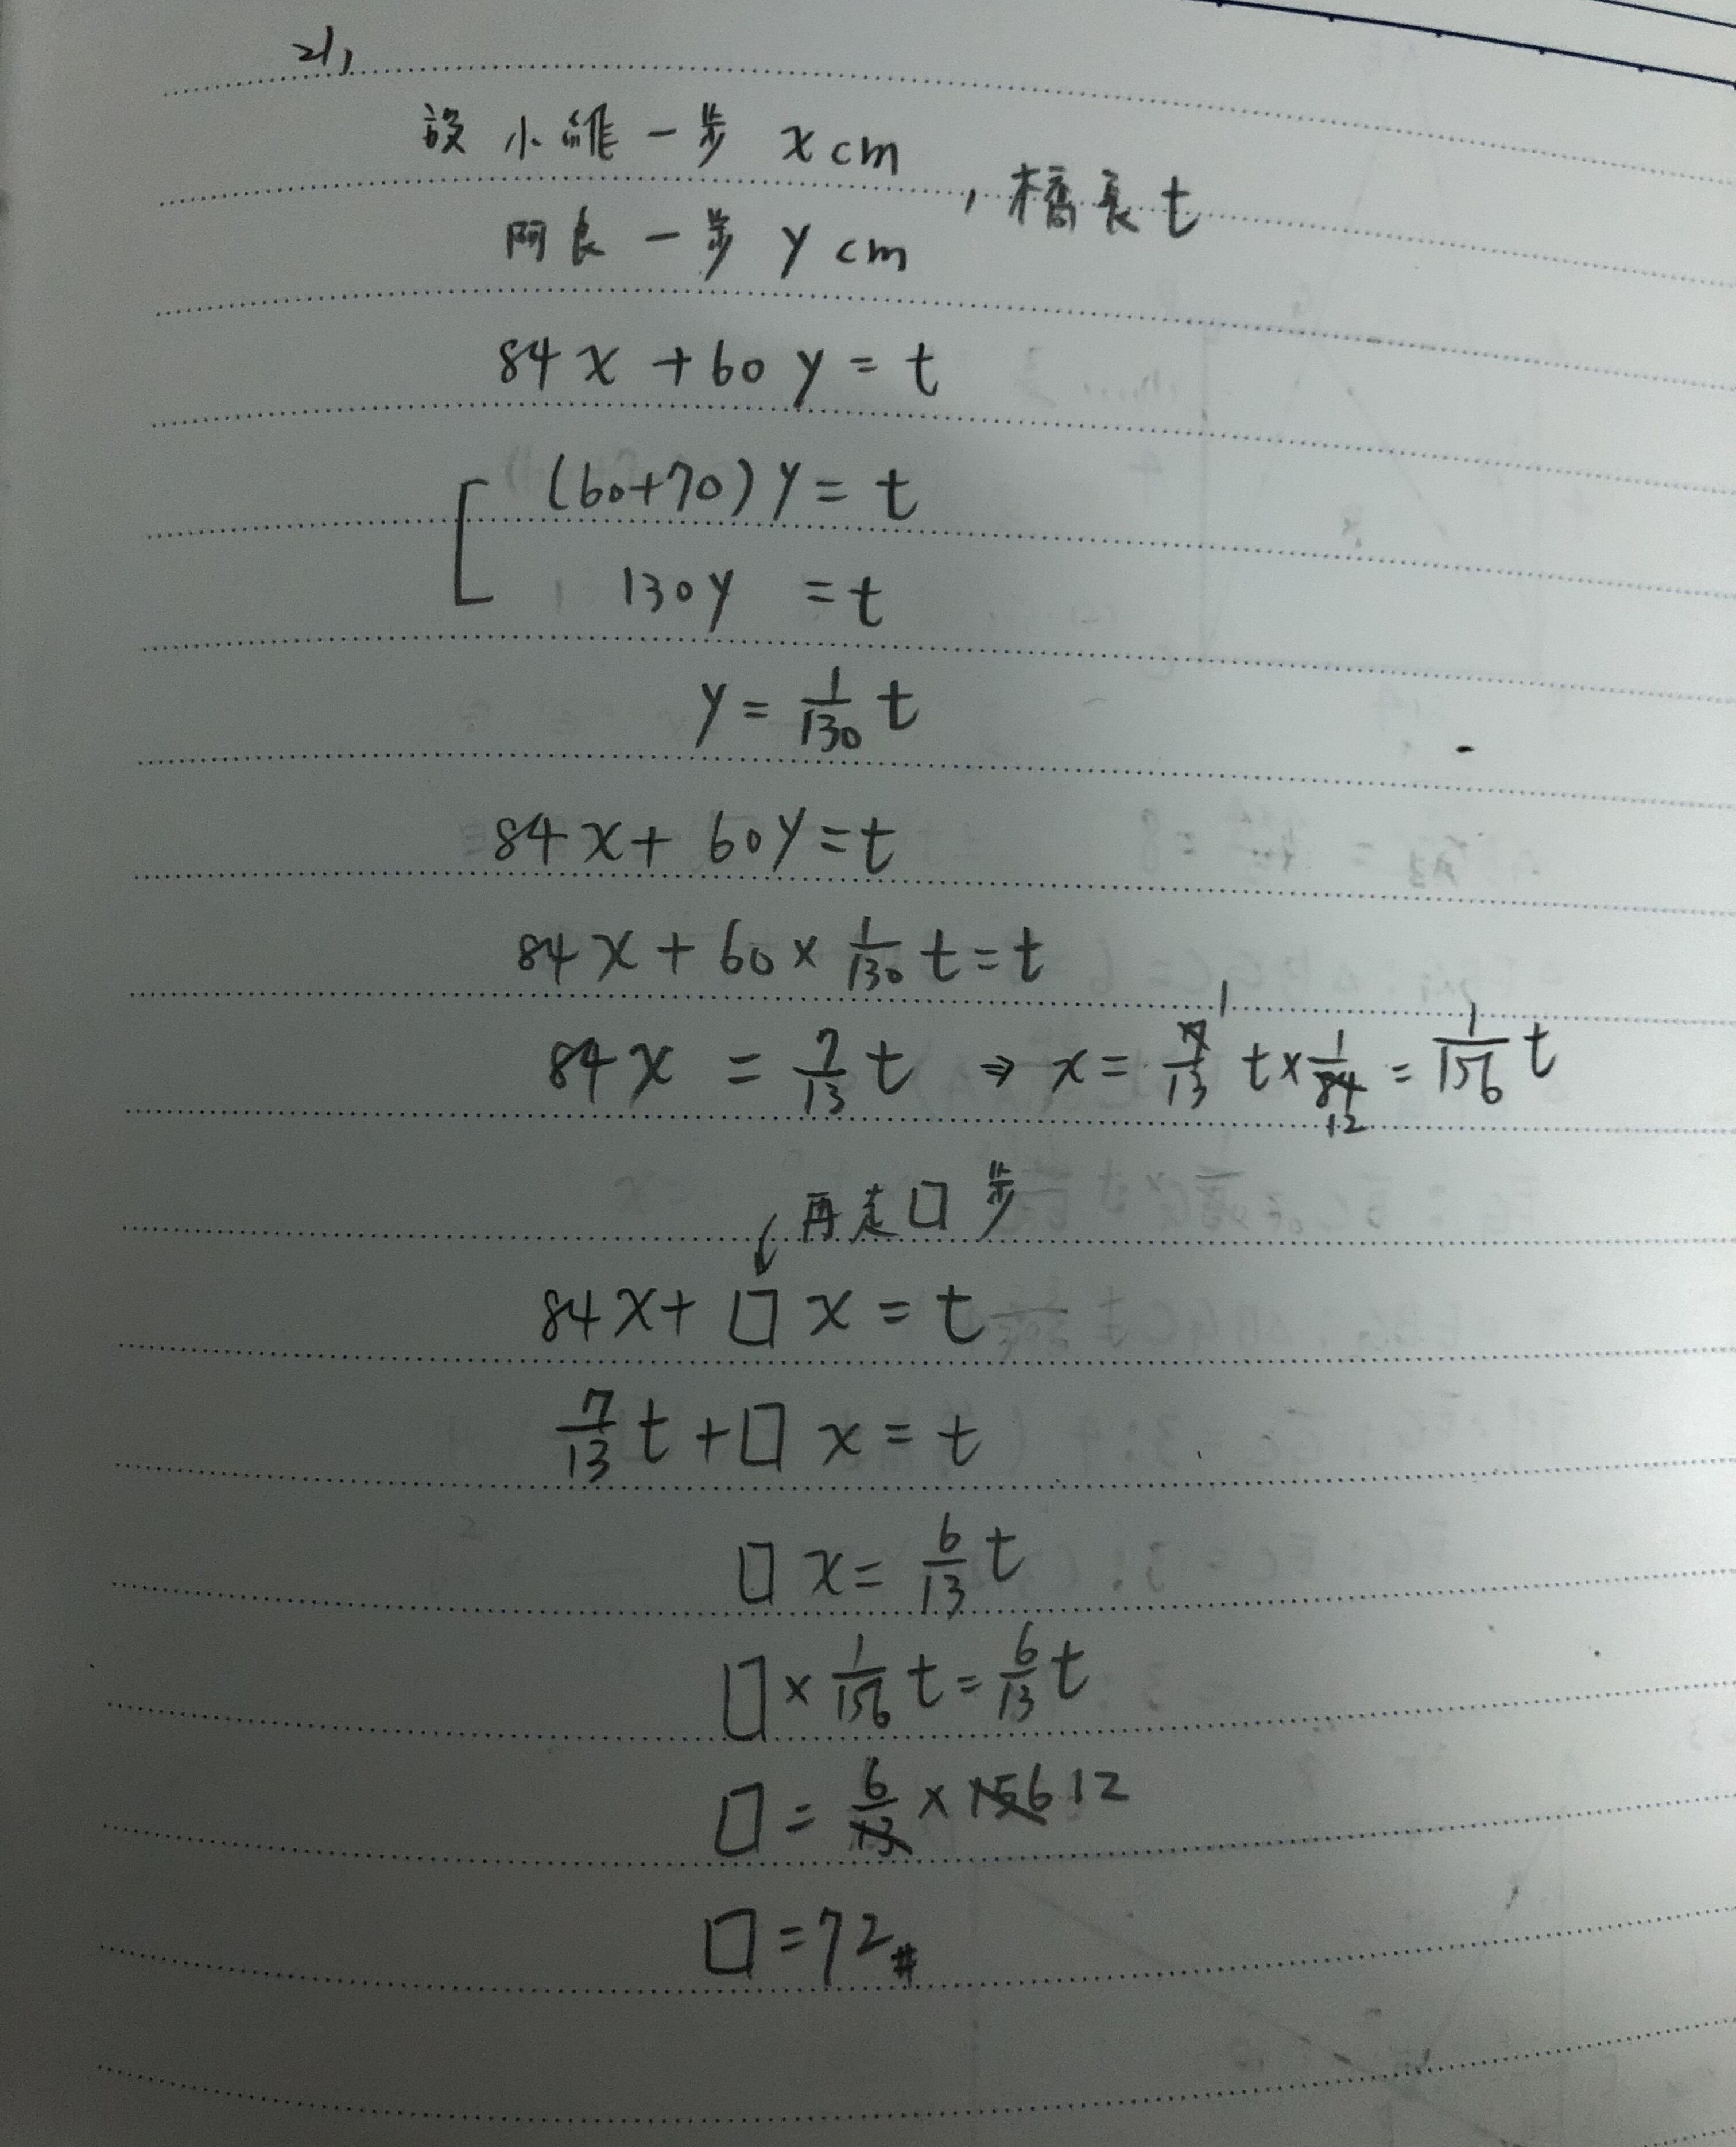 21,
設小維一步 x cm
阿良一步 y cm ，橋長 t
84x + 60y = t
(60+70)y = t
130y = t
y = 1/130 t
84x + 60y = t
84x + 60 × 1/130 t = t
84x = 7/13 t ⇒ x = 7/13 t × 1/84 = 1/156 t
1
12
再走□步
84x + □x = t
7/13 t + □x = t
□x = 6/13 t
□ × 1/156 t = 6/13 t
□ = 6/13 × 156 12
□ = 72 #